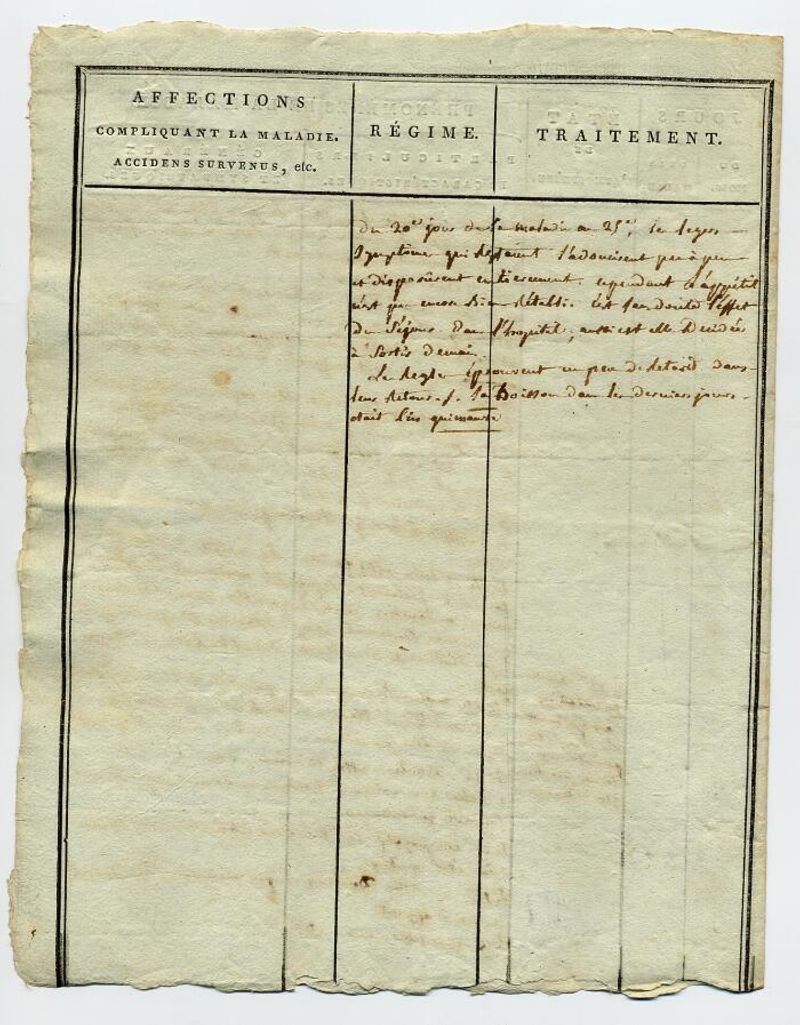 AFFECTIONS
COMPLIQUANT LA MALADIE.
ACCIDENS SURVENUS, etc.
RÉGIME.
TRAITEMENT.
Du 20e jour de la maladie au 25e, les legers
symptômes qui restaient s'adoucirent peu à peu
et disparûrent entierement. cependant l'appétit
n'est pas encore bien rétabli. c'est sans doute l'effet
du séjour dans l'hopital, aussi est elle decidée
à sortir demain.
Les regles éprouvent un peu de retard dans
leur retour. /. sa boisson dans les derniers jours
était